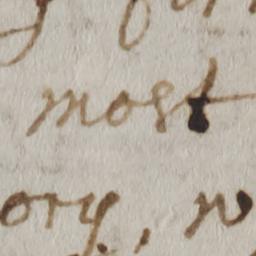 most
ory, w